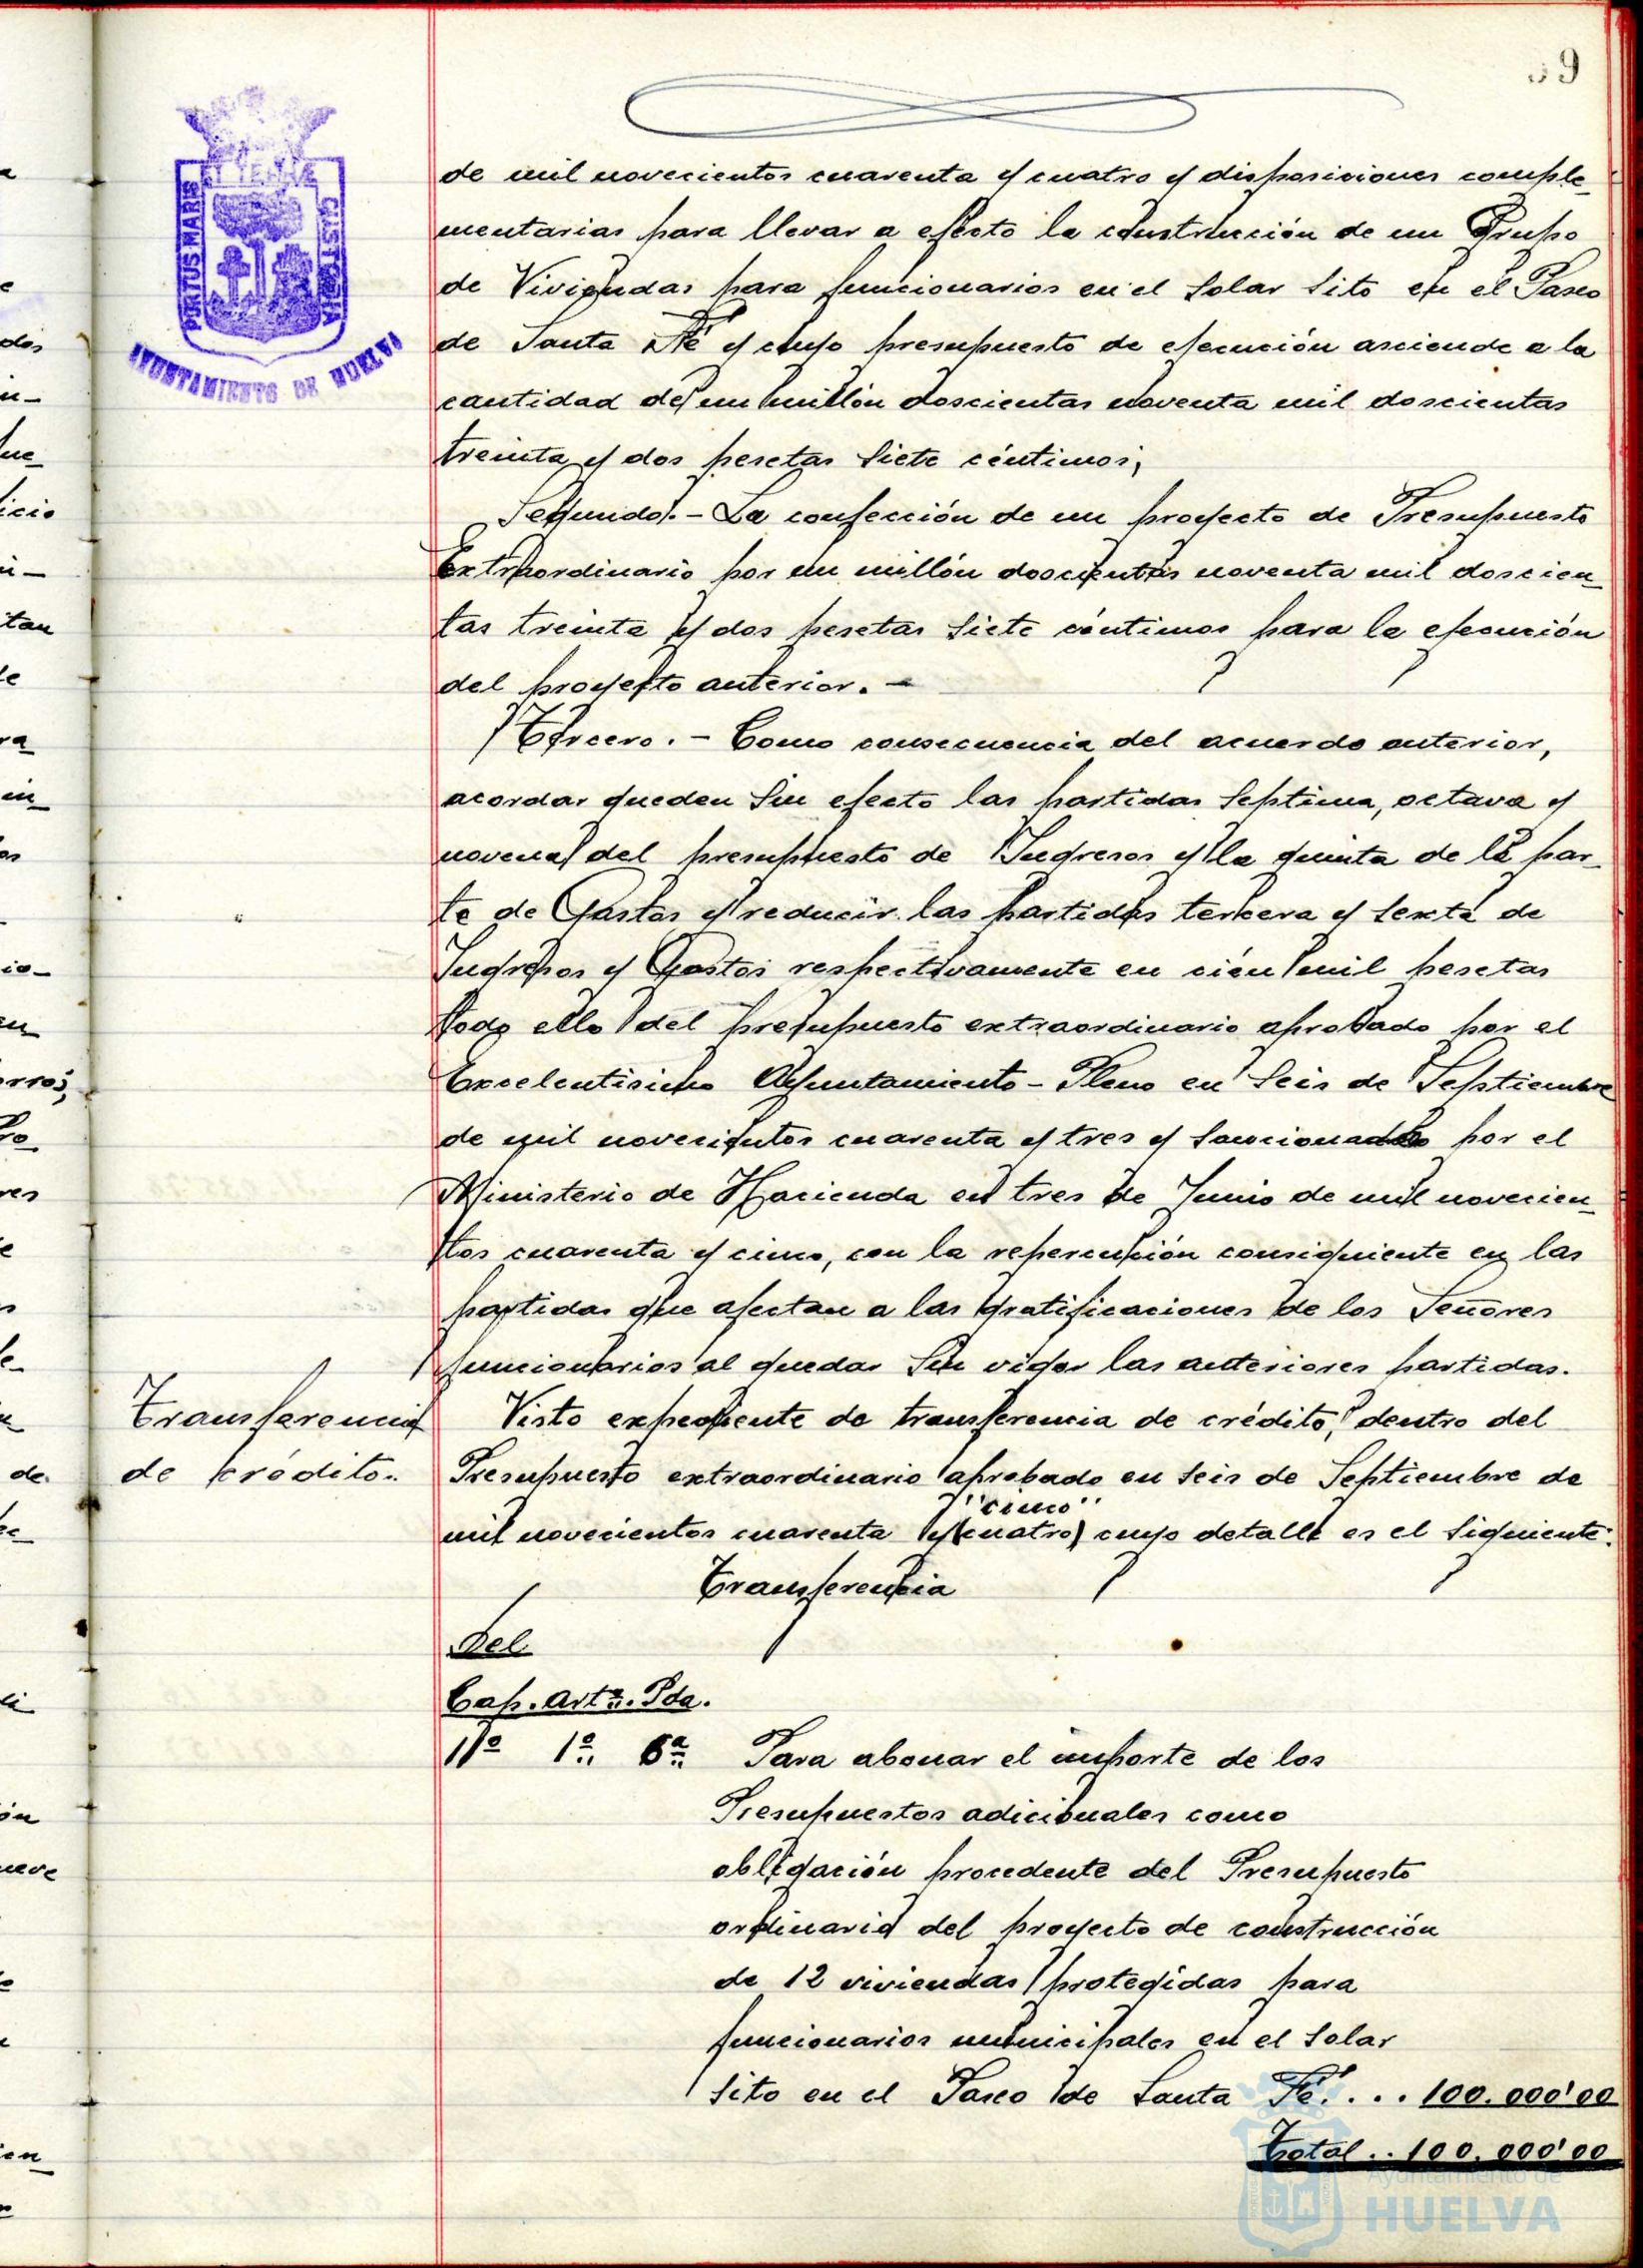 59
de mil novecientos cuarenta y cuatro y disposiciones comple-
mentarias para llevar a efecto la construcción de un Grupo
de Viviendas para funcionarios en el solar sito en el Paseo
de Santa Fé y cuyo presupuesto de ejecución asciende a la
cantidad de un millón doscientas noventa mil doscientas
treinta y dos pesetas siete céntimos;
Segundo.- La confección de un proyecto de Presupuesto
Extraordinario por un millón doscientas noventa mil doscien-
tas treinta y dos pesetas siete céntimos para la ejecución
del proyecto anterior.-
Tercero.- Como consecuencia del acuerdo anterior,
acordar queden sin efecto las partidas septima, octava y
novena del presupuesto de Ingresos y la quinta de la par-
te de Gastos y reducir las partidas tercera y sexta de
Ingresos y Gastos respectivamente en cien mil pesetas
todo ello del presupuesto extraordinario aprobado por el
Excelentisimo Ayuntamiento-Pleno en seis de Septiembre
de mil novecientos cuarenta y tres y sancionado por el
Ministerio de Hacienda en tres de Junio de mil novecien-
tos cuarenta y cinco, con la repercusión consiguiente en las
partidas que afectan a las gratificaciones de los Señores
funcionarios al quedar sin vigor las anteriores partidas.
Transferencia
de crédito..
Visto expediente de transferencia de crédito, dentro del
Presupuesto extraordinario aprobado en seis de Septiembre de
"cinco"
mil novecientos cuarenta y (cuatro) cuyo detalle es el siguiente:
Transferencia
Del
Cap. Artº. Pda.
11º 1º 6ª Para abonar el importe de los
Presupuestos adicionales como
obligación procedente del Presupuesto
ordinario del proyecto de construcción
de 12 viviendas protegidas para
funcionarios municipales en el solar
sito en el Paseo de Santa Fé. . . . 100.000'00
Total . . 100.000'00
PORTUS MARIS
ET TERRAE
CUSTODIA
AYUNTAMIENTO DE HUELVA
Ayuntamiento de
HUELVA